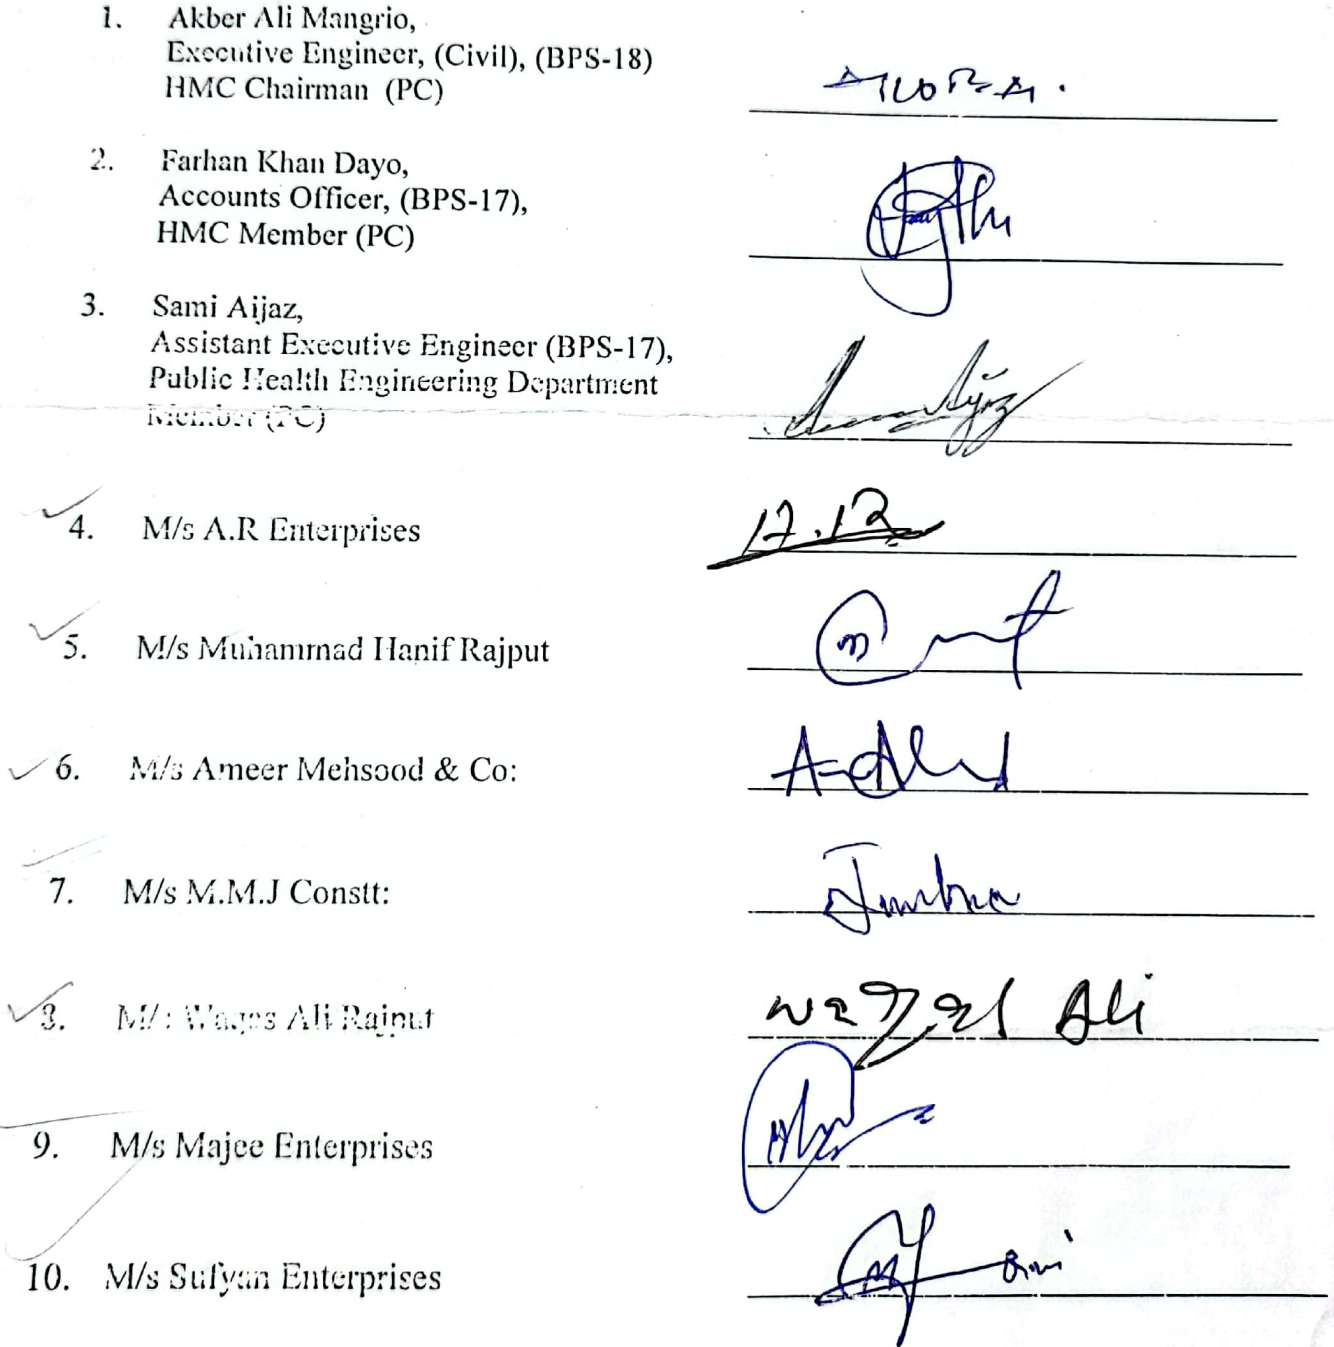 1. Akber Ali Mangrio,
Executive Engineer, (Civil), (BPS-18)
HMC Chairman (PC)
2. Farhan Khan Dayo,
Accounts Officer, (BPS-17),
HMC Member (PC)
3. Sami Aijaz,
Assistant Executive Engineer (BPS-17),
Public Health Engineering Department
Member (PC)
4. M/s A.R Enterprises
5. M/s Muhammad Hanif Rajput
6. M/s Ameer Mehsood & Co:
7. M/s M.M.J Constt:
8. M/s Waqas Ali Rajput Ali
9. M/s Majee Enterprises
10. M/s Sufyan Enterprises